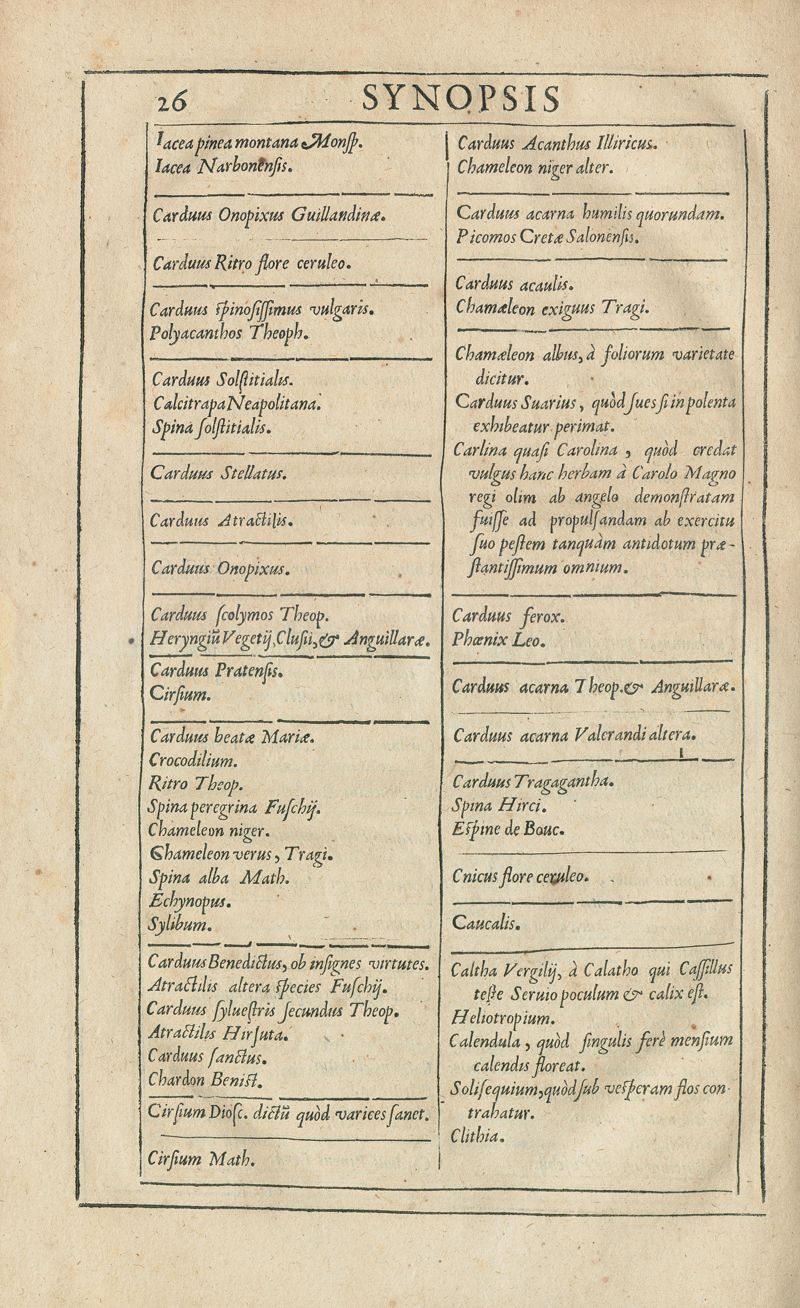 26
SYNOPSIS
Iacea pinea montana Monſp.
Iacea Narbonenſis.
Carduus Onopixus Guillandinæ.
Carduus Ritro flore ceruleo.
Carduus ſpinoſiſſimus vulgaris.
Polyacanthos Theoph.
Carduus Solſtitialis.
Calcitrapa Neapolitana.
Spina ſolſtitialis.
Carduus Stellatus.
Carduus Atractilis.
Carduus Onopixus.
Carduus ſcolymos Theop.
Heryngiū Vegetij, Cluſii, & Anguillaræ.
Carduus Pratenſis.
Cirſium.
Carduus beatæ Mariæ.
Crocodilium.
Ritro Theop.
Spina peregrina Fuſchij.
Chameleon niger.
Chameleon verus, Tragi.
Spina alba Math.
Echynopus.
Sylibum.
Carduus Benedictus, ob inſignes virtutes.
Atractilis altera ſpecies Fuſchij.
Carduus ſylueſtris ſecundus Theop.
Atractilis Hirſuta.
Carduus ſanctus.
Chardon Beniſt.
Cirſium Dioſc. dictū quòd varices ſanet.
Cirſium Math.
Carduus Acanthus Illiricus.
Chameleon niger alter.
Carduus acarna humilis quorundam.
Picomos Cretæ Salonenſis.
Carduus acaulis.
Chamæleon exiguus Tragi.
Chamæleon albus, à foliorum varietate
dicitur.
Carduus Suarius, quòd ſues ſi in polenta
exhibeatur perimat.
Carlina quaſi Carolina, quòd credat
vulgus hanc herbam à Carolo Magno
regi olim ab angelo demonſtratam
fuiſſe ad propulſandam ab exercitu
ſuo peſtem tanquàm antidotum præ-
ſtantiſſimum omnium.
Carduus ferox.
Phœnix Leo.
Carduus acarna Theop. & Anguillaræ.
Carduus acarna Valerandi altera.
Carduus Tragagantha.
Spina Hirci.
Eſpine de Bouc.
Cnicus flore ceruleo.
Caucalis.
Caltha Vergilij, à Calatho qui Caſſillus
teſte Seruio poculum & calix eſt.
Heliotropium.
Calendula, quòd ſingulis ferè menſium
calendis floreat.
Soliſequium, quòd ſub veſperam flos con-
trahatur.
Clithia.